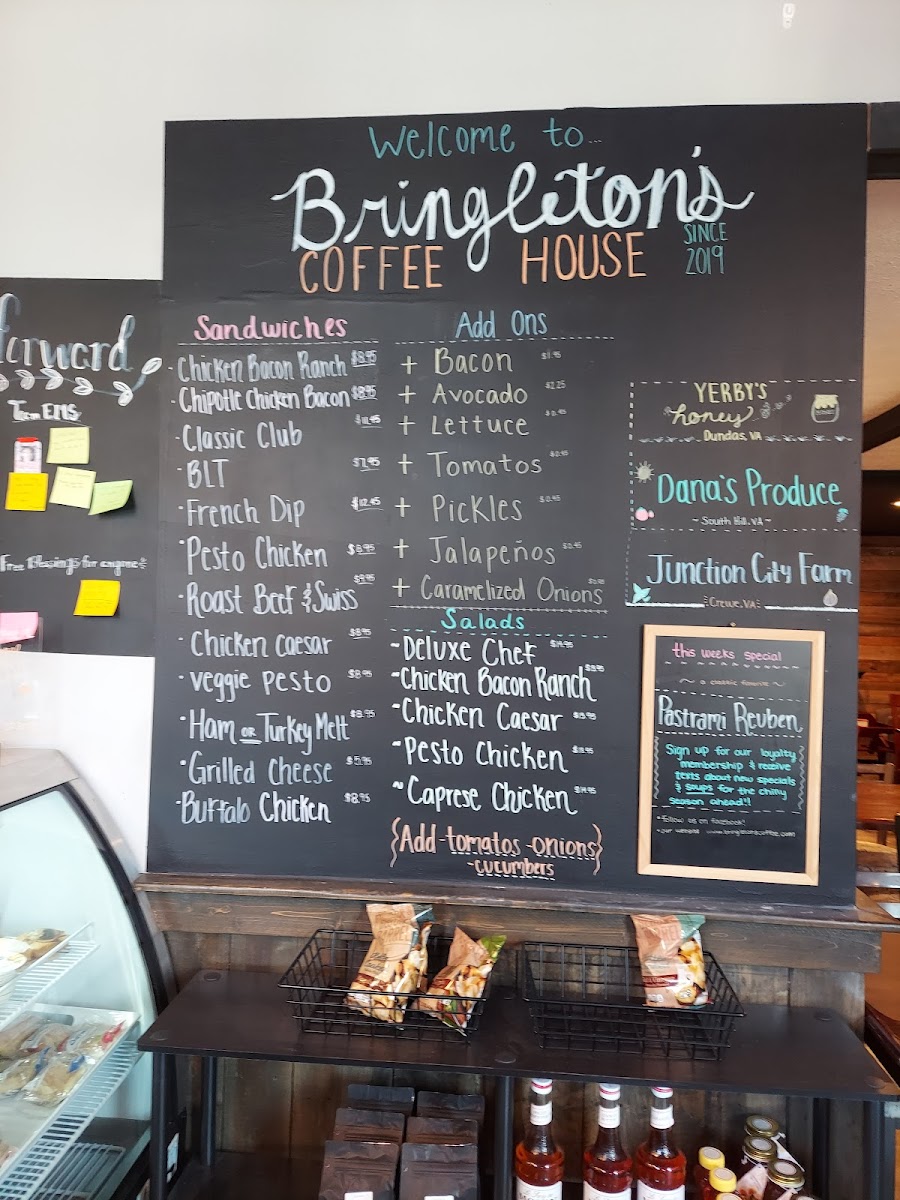 Welcome to...
Bringleton's
COFFEE HOUSE
SINCE
2019
forward
Team EMS
Free Blessings for anyone
Sandwiches
Chicken Bacon Ranch $8.95
Chipotle Chicken Bacon $8.95
Classic Club $11.45
BLT $7.95
French Dip $12.45
Pesto Chicken $8.95
Roast Beef & Swiss $9.95
Chicken Caesar $8.95
Veggie Pesto $8.95
Ham OR Turkey Melt $8.95
Grilled Cheese $5.95
Buffalo Chicken $8.95
Add Ons
+ Bacon $1.95
+ Avocado $2.25
+ Lettuce $0.45
+ Tomatos $0.45
+ Pickles $0.45
+ Jalapeños $0.45
+ Caramelized Onions
Salads
~Deluxe Chef $14.95
~Chicken Bacon Ranch
~Chicken Caesar
~Pesto Chicken
~Caprese Chicken $14.95
{Add -tomatos -onions}
-cucumbers
YERBY'S
honey
Dundas, VA
Dana's Produce
~ South Hill, VA ~
Junction City Farm
Crewe, VA
this weeks special
~ a classic favorite ~
Pastrami Reuben
Sign up for our loyalty
membership & receive
texts about new specials
& soups for the chilly
season ahead!!
•follow us on facebook!
•our website www.bringletonscoffee.com